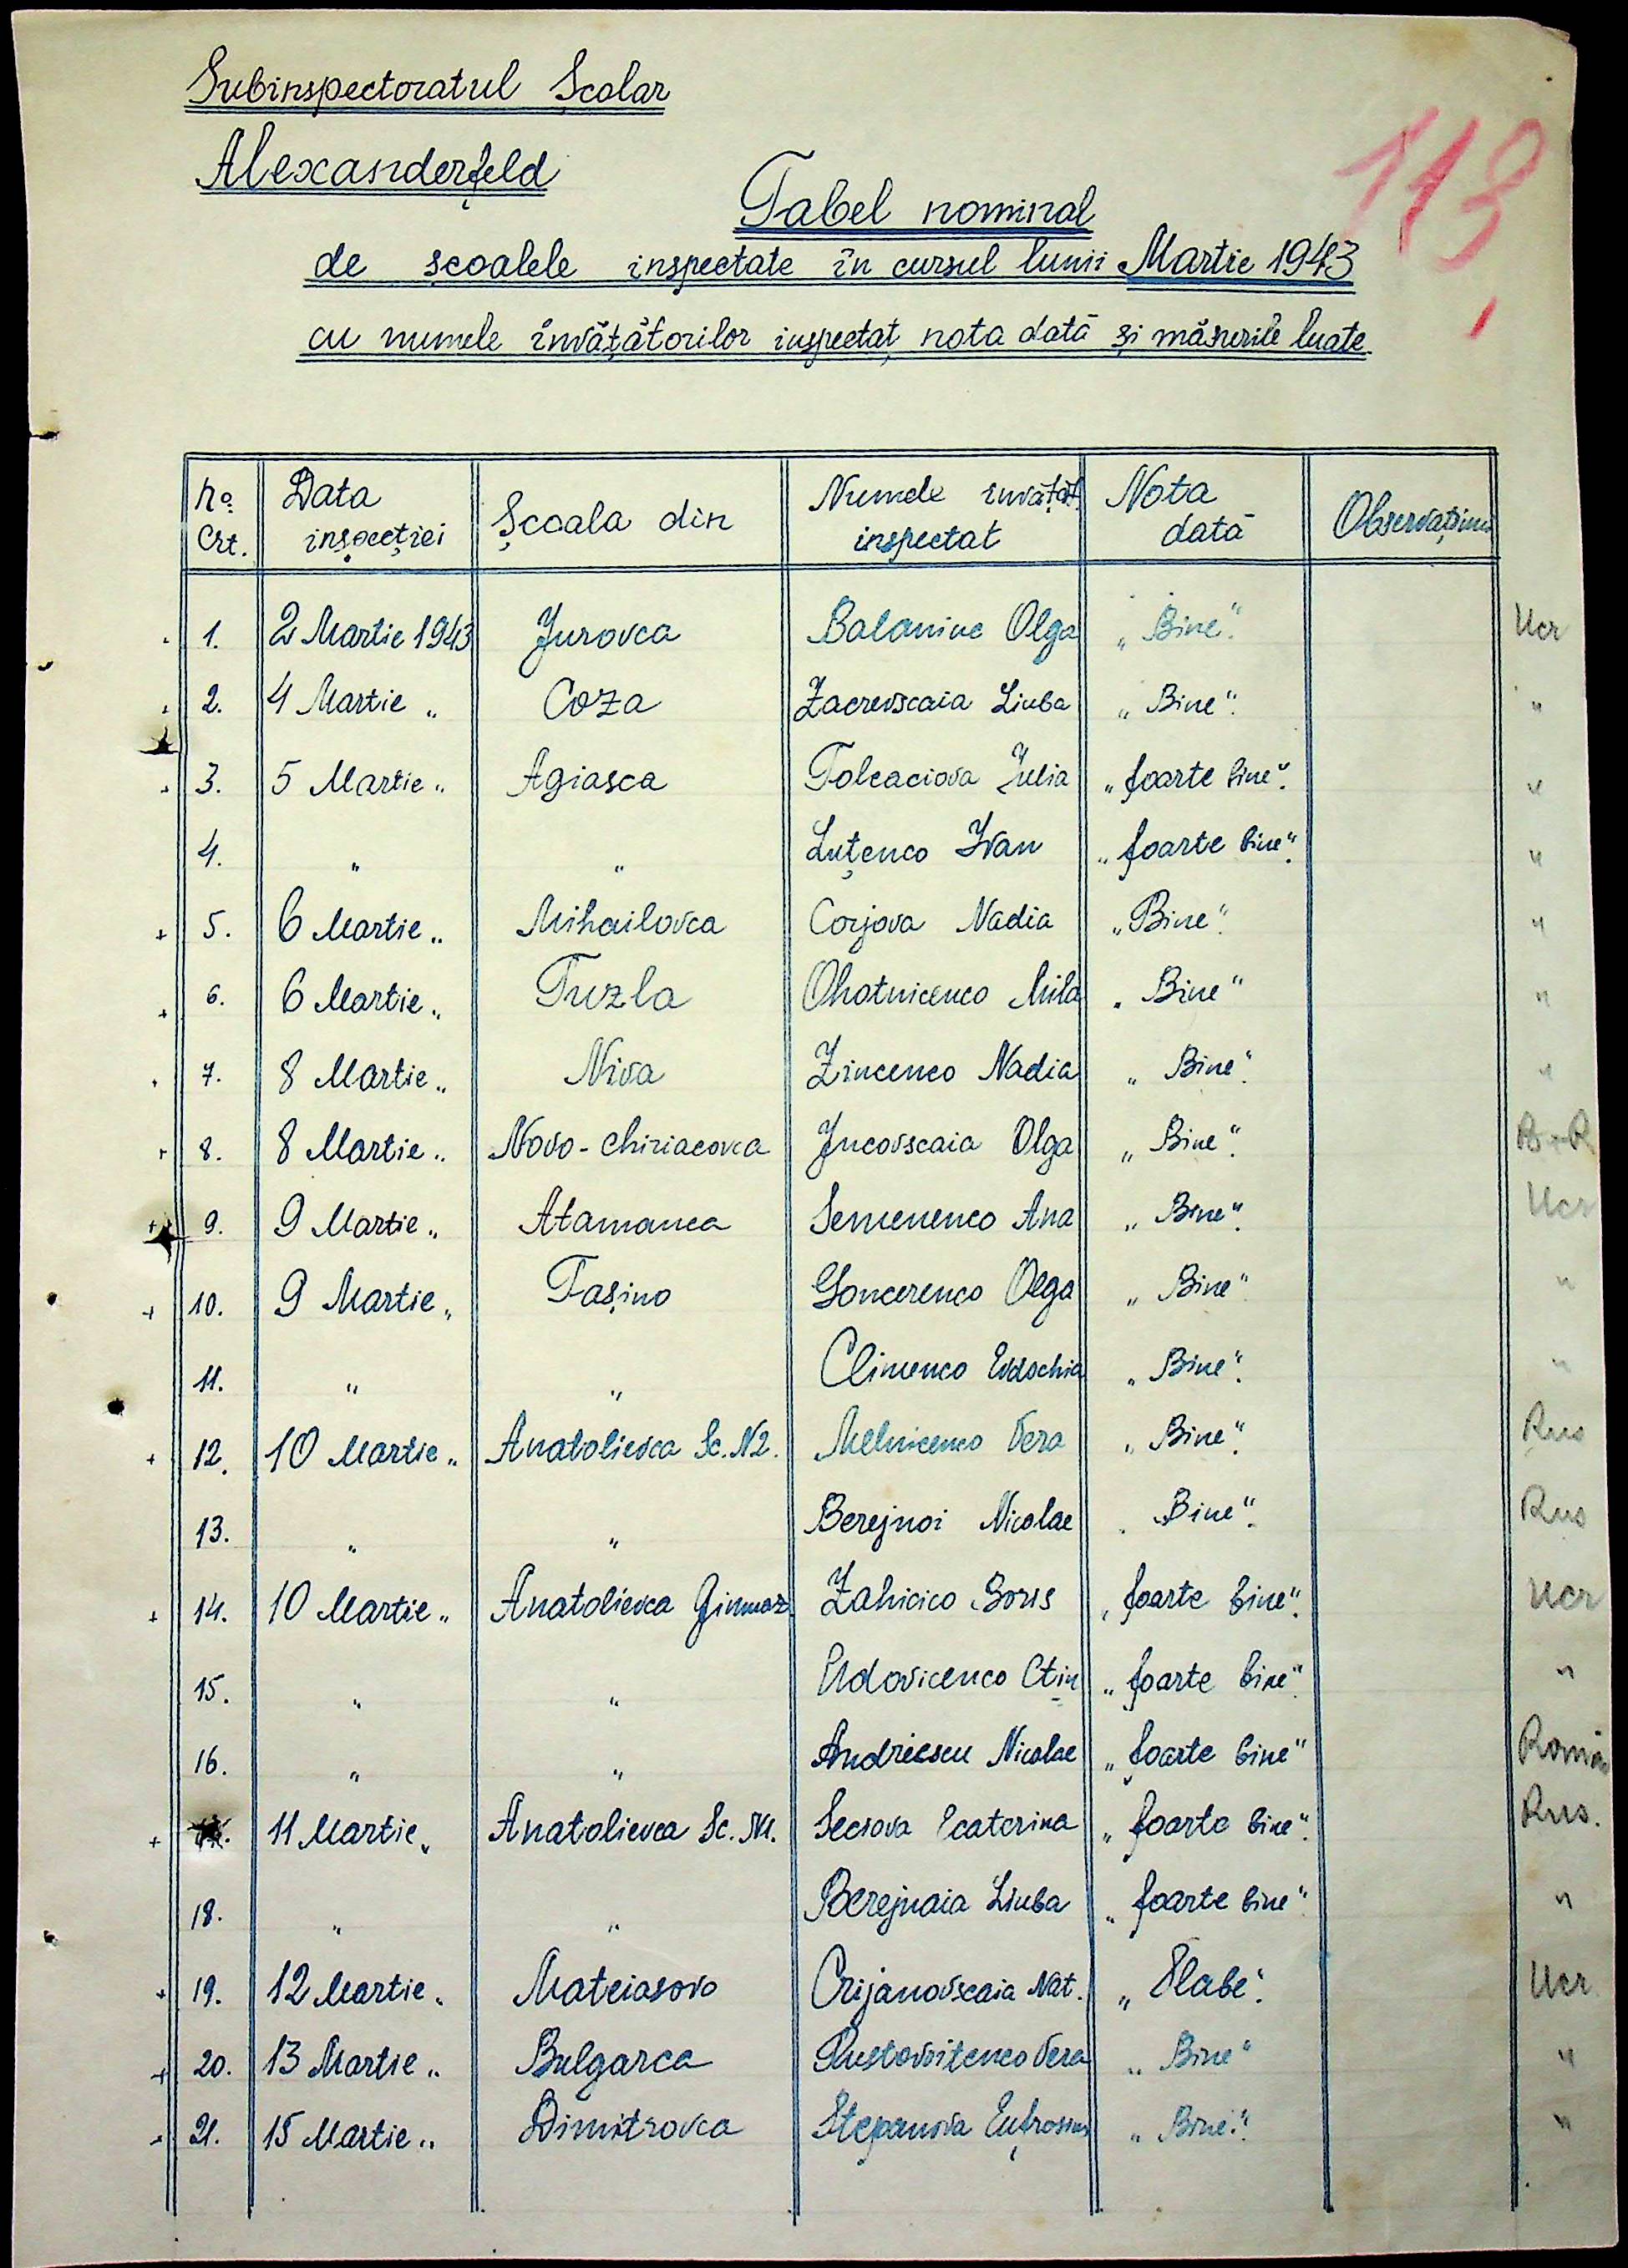 Subinspectoratul Școlar
Alexanderfeld
113
Tabel nominal
de școalele inspectate în cursul lunii Martie 1943
cu numele învățătorilor inspectat, nota dată și măsurile luate.
No. Crt. | Data inspecției | Școala din | Numele învățăt. inspectat | Nota dată | Observațiuni
1. 2 Martie 1943 Jurovca Balanine Olga „Bine". Ucr
2. 4 Martie „ Coza Zacrevscaia Liuba „Bine". "
3. 5 Martie „ Agiasca Tolcaciova Julia „foarte bine". "
4. „ „ Luțenco Ivan „foarte bine". "
5. 6 Martie „ Mihailovca Corjova Nadia „Bine". "
6. 6 Martie „ Tuzla Ohotnicenco Mila „Bine" "
7. 8 Martie „ Niva Zincenco Nadia „Bine". "
8. 8 Martie „ Novo-Chiriacovca Jucovscaia Olga „Bine".
9. 9 Martie „ Atamanca Semenenco Ana „Bine". Ucr
10. 9 Martie „ Tașino Goncerenco Olga „Bine" "
11. „ „ Climenco Evdochia „Bine". "
12. 10 Martie „ Anatolievca Sc. N2. Melnicenco Vera „Bine". Rus
13. „ „ Berejnoi Nicolae „Bine". Rus
14. 10 Martie „ Anatolievca Gimnaz. Zahicico Boris „foarte bine". Ucr
15. „ „ Udovicenco Ctin „foarte bine". "
16. „ „ Andriescu Nicolae „foarte bine" Român
11 Martie „ Anatolievca Sc. N1. Secsova Ecaterina „foarte bine". Rus.
18. „ „ Berejnaia Liuba „foarte bine". "
19. 12 Martie „ Mateiasovo Crijanovscaia Nat. „Slabe". Ucr.
20. 13 Martie „ Bulgarca Pustovoitenco Vera „Bine" "
21. 15 Martie „ Dimitrovca Stepanova Eufrosina „Bine". "